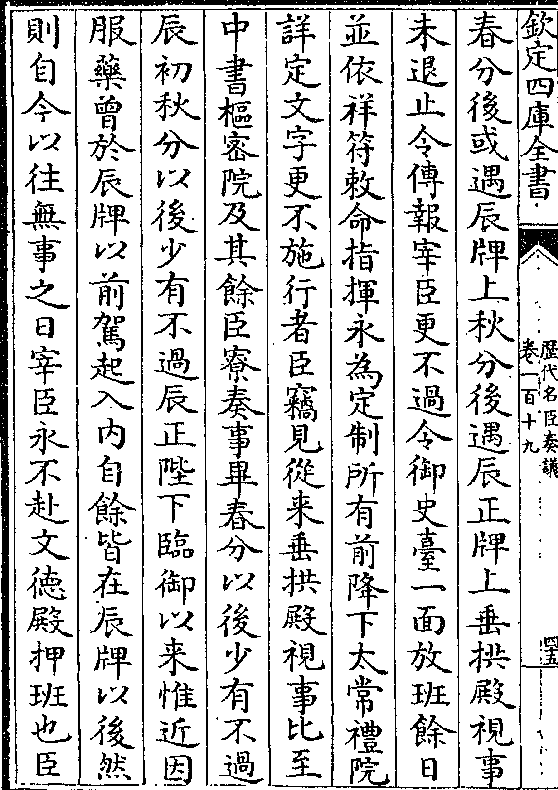 欽定四庫全書
歷代名臣奏議
卷一百十九
四五
春分後或遇辰牌上秋分後遇辰正牌上垂拱殿視事
未退止令傳報宰臣更不過令御史臺一面放班餘日
並依祥符敕命指揮永為定制所有前降下太常禮院
詳定文字更不施行者臣竊見從来垂拱殿視事比至
中書樞密院及其餘臣寮奏事畢春分以後少有不過
辰初秋分以後少有不過辰正陛下臨御以来惟近因
服藥曽於辰牌以前駕起入内自餘皆在辰牌以後然
則自今以往無事之日宰臣永不赴文德殿押班也臣